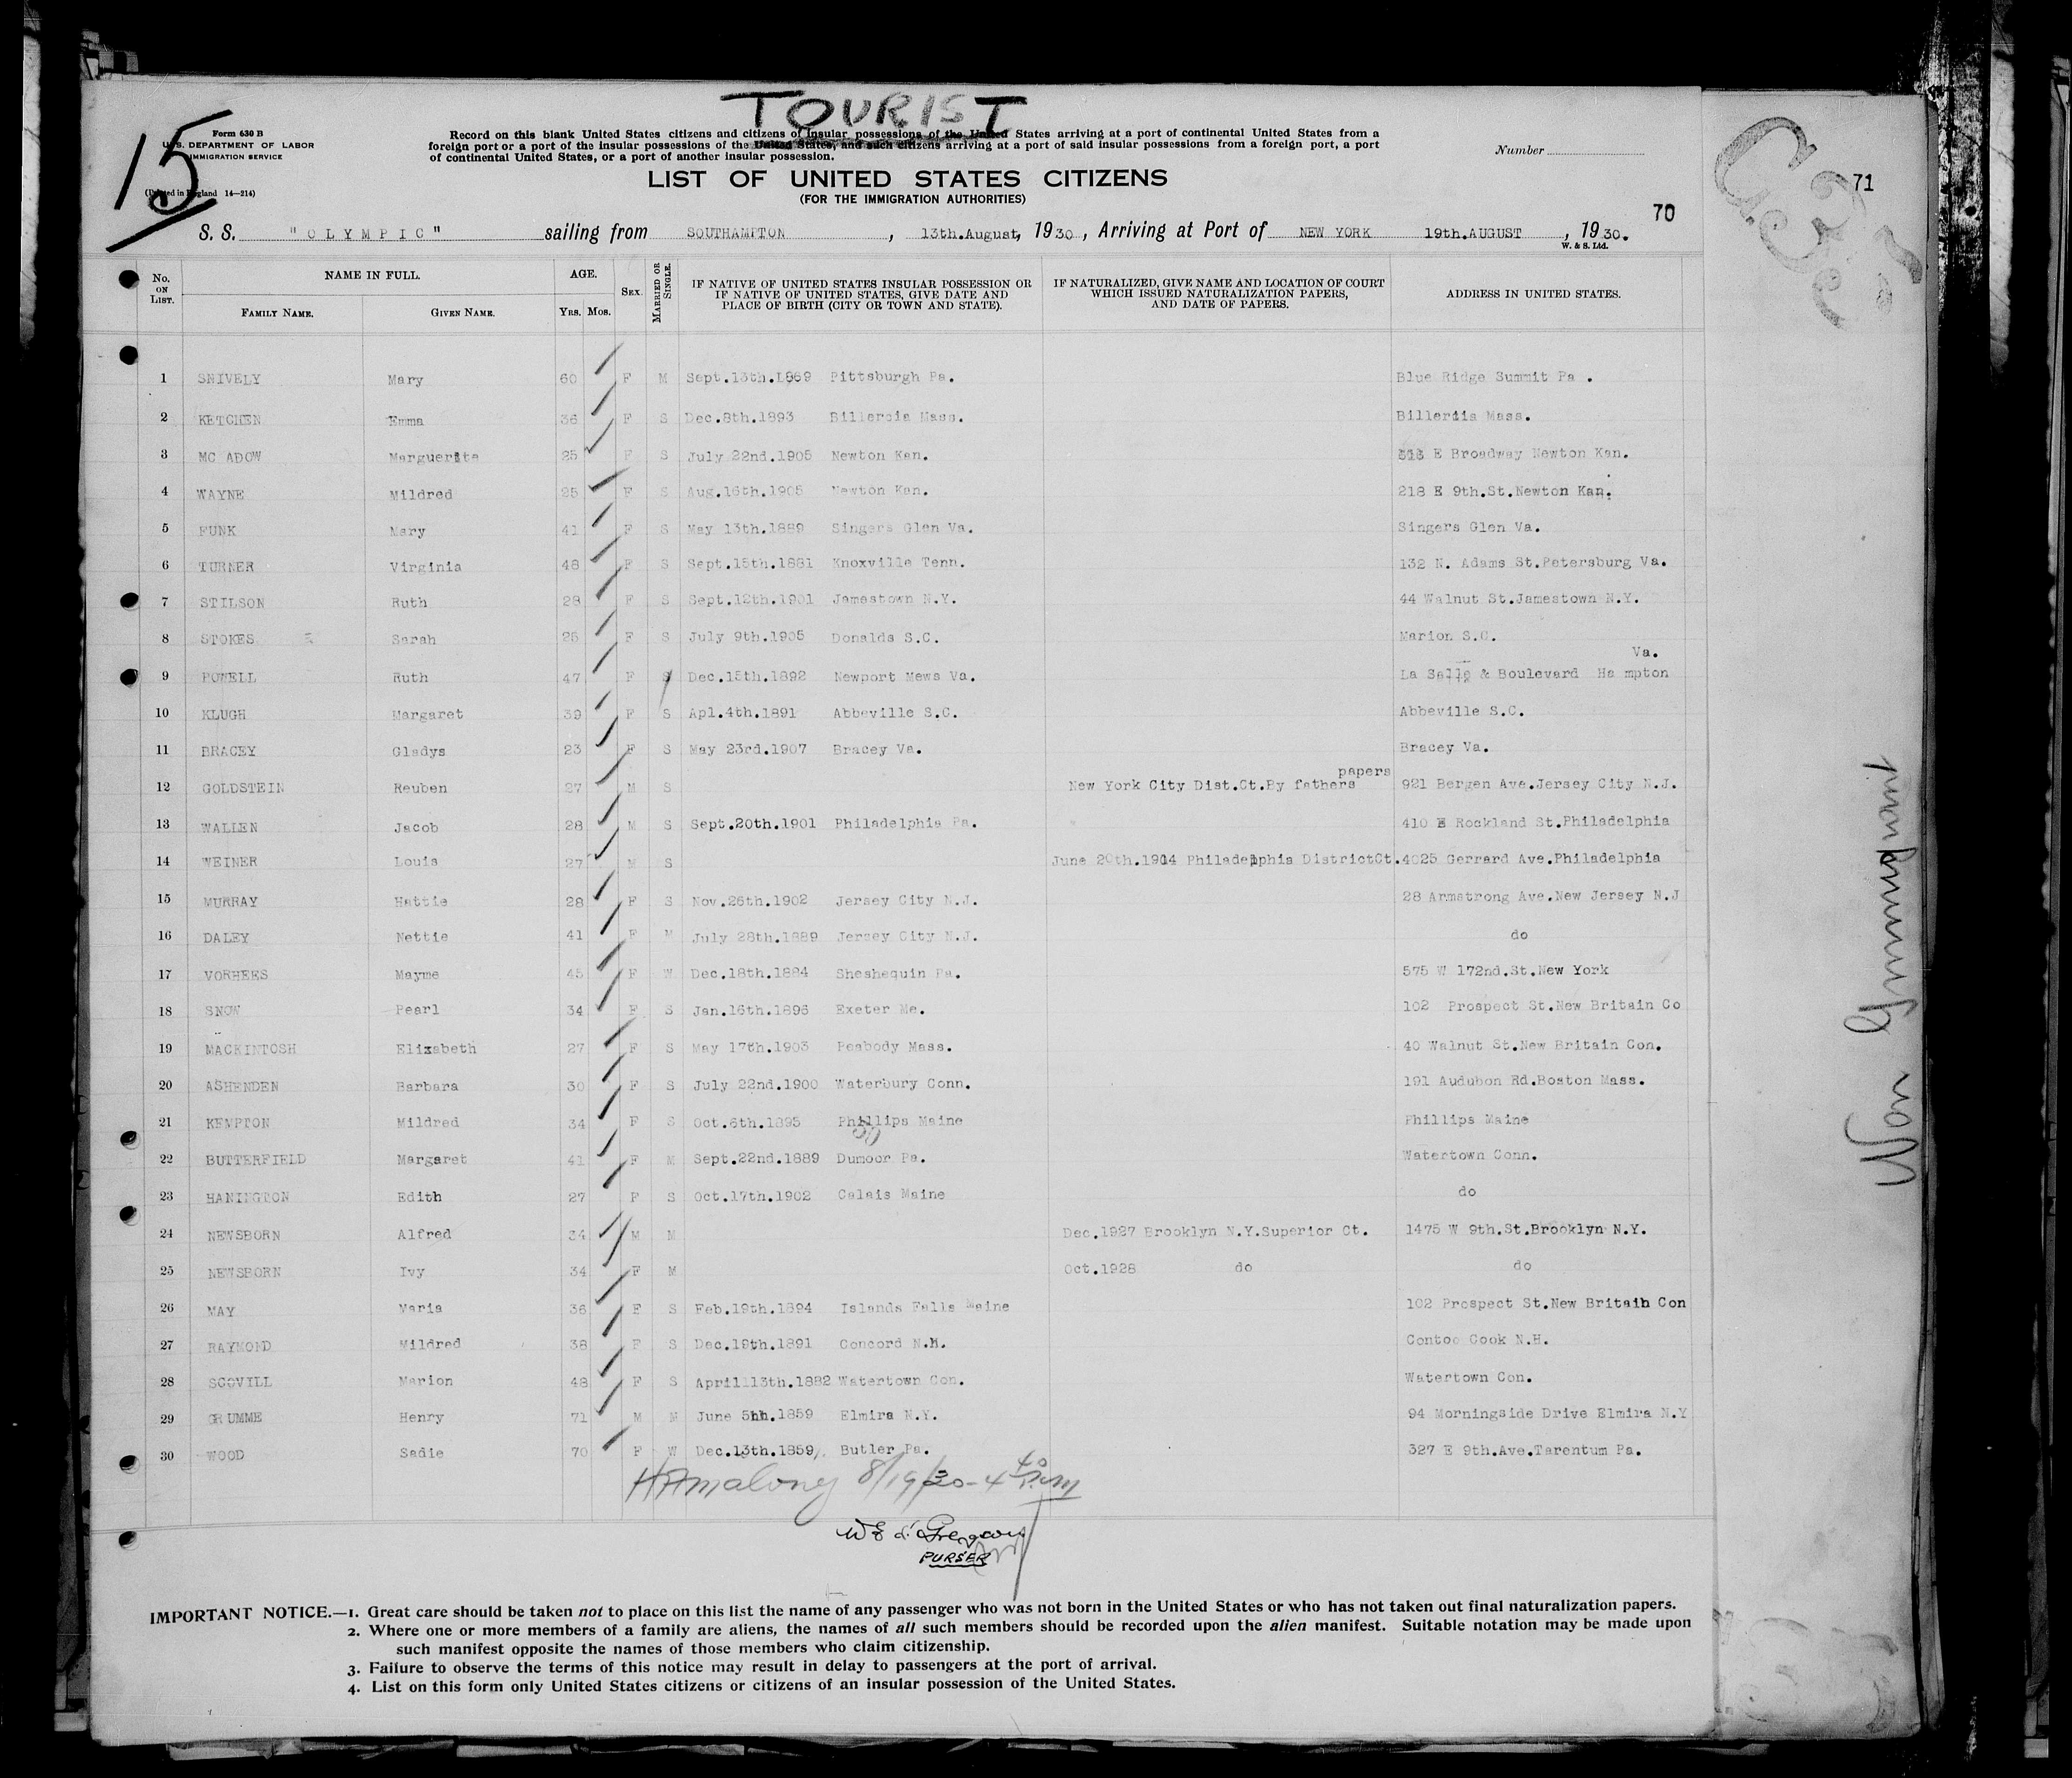 TOURIST
15
Form 630 B
U.S. DEPARTMENT OF LABOR
IMMIGRATION SERVICE
(Printed in England 14—214)
Record on this blank United States citizens and citizens of insular possessions of the United States arriving at a port of continental United States from a
foreign port or a port of the insular possessions of the United States, and such citizens arriving at a port of said insular possessions from a foreign port, a port
of continental United States, or a port of another insular possession.
Number
LIST OF UNITED STATES CITIZENS
(FOR THE IMMIGRATION AUTHORITIES)
71
70
S. S. "OLYMPIC" sailing from SOUTHAMPTON, 13th.August, 1930, Arriving at Port of NEW YORK 19th.AUGUST, 1930.
W. & S. Ltd.
No. ON LIST. NAME IN FULL. FAMILY NAME. GIVEN NAME. AGE. YRS. MOS. SEX. MARRIED OR SINGLE. IF NATIVE OF UNITED STATES INSULAR POSSESSION OR IF NATIVE OF UNITED STATES, GIVE DATE AND PLACE OF BIRTH (CITY OR TOWN AND STATE). IF NATURALIZED, GIVE NAME AND LOCATION OF COURT WHICH ISSUED NATURALIZATION PAPERS, AND DATE OF PAPERS. ADDRESS IN UNITED STATES.
1 SNIVELY Mary 60 F M Sept.13th.1869 Pittsburgh Pa. Blue Ridge Summit Pa .
2 KETCHEN Emma 36 F S Dec.8th.1893 Billercia Mass. Billerdis Mass.
3 MC ADOW Marguerite 25 F S July 22nd.1905 Newton Kan. E Broadway Newton Kan.
4 WAYNE Mildred 25 F S Aug.16th.1905 Newton Kan. 218 E 9th.St.Newton Kan.
5 FUNK Mary 41 F S May 13th.1889 Singers Glen Va. Singers Glen Va.
6 TURNER Virginia 48 F S Sept.15th.1881 Knoxville Tenn. 132 N. Adams St.Petersburg Va.
7 STILSON Ruth 28 F S Sept.12th.1901 Jamestown N.Y. 44 Walnut St.Jamestown N.Y.
8 STOKES Sarah 25 F S July 9th.1905 Donalds S.C. Marion S.C.
9 POWELL Ruth 47 F S Dec.15th.1892 Newport News Va. La Salle & Boulevard Ha mpton Va.
10 KLUGH Margaret 39 F S Apl.4th.1891 Abbeville S.C. Abbeville S.C.
11 BRACEY Gladys 23 F S May 23rd.1907 Bracey Va. Bracey Va.
12 GOLDSTEIN Reuben 27 M S New York City Dist.Ct.By fathers papers 921 Bergen Ave.Jersey City N.J.
13 WALLEN Jacob 28 M S Sept.20th.1901 Philadelphia Pa. 410 E Rockland St.Philadelphia
14 WEINER Louis 27 M S June 20th.1904 Philadelphia DistrictCt. 4025 Gerrard Ave.Philadelphia
15 MURRAY Hattie 28 F S Nov.26th.1902 Jersey City N.J. 28 Armstrong Ave.New Jersey N.J
16 DALEY Nettie 41 F M July 28th.1889 Jersey City N.J. do
17 VORHEES Mayme 45 F W Dec.18th.1884 Sheshequin Pa. 575 W 172nd.St.New York
18 SNOW Pearl 34 F S Jan.16th.1896 Exeter Me. 102 Prospect St.New Britain Co
19 MACKINTOSH Elizabeth 27 F S May 17th.1903 Peabody Mass. 40 Walnut St.New Britain Con.
20 ASHENDEN Barbara 30 F S July 22nd.1900 Waterbury Conn. 191 Audubon Rd.Boston Mass.
21 KEMPTON Mildred 34 F S Oct.6th.1895 Phillips Maine Phillips Maine
22 BUTTERFIELD Margaret 41 F M Sept.22nd.1889 Dumoor Pa. Watertown Conn.
23 HANINGTON Edith 27 F S Oct.17th.1902 Calais Maine do
24 NEWSBORN Alfred 34 M M Dec.1927 Brooklyn N.Y.Superior Ct. 1475 W 9th.St.Brooklyn N.Y.
25 NEWSBORN Ivy 34 F M Oct.1928 do do
26 MAY Maria 36 F S Feb.19th.1894 Islands Falls Maine 102 Prospect St.New Britain Con
27 RAYMOND Mildred 38 F S Dec.19th.1891 Concord N.H. Contoo Cook N.H.
28 SCOVILL Marion 48 F S April13th.1882 Watertown Con. Watertown Con.
29 GRUMME Henry 71 M M June 5hh.1859 Elmira N.Y. 94 Morningside Drive Elmira N.Y
30 WOOD Sadie 70 F W Dec.13th.1859 Butler Pa. 327 E 9th.Ave.Tarentum Pa.
8/19/30-4 40 P.M
PURSER
IMPORTANT NOTICE.—1. Great care should be taken not to place on this list the name of any passenger who was not born in the United States or who has not taken out final naturalization papers.
2. Where one or more members of a family are aliens, the names of all such members should be recorded upon the alien manifest. Suitable notation may be made upon
such manifest opposite the names of those members who claim citizenship.
3. Failure to observe the terms of this notice may result in delay to passengers at the port of arrival.
4. List on this form only United States citizens or citizens of an insular possession of the United States.